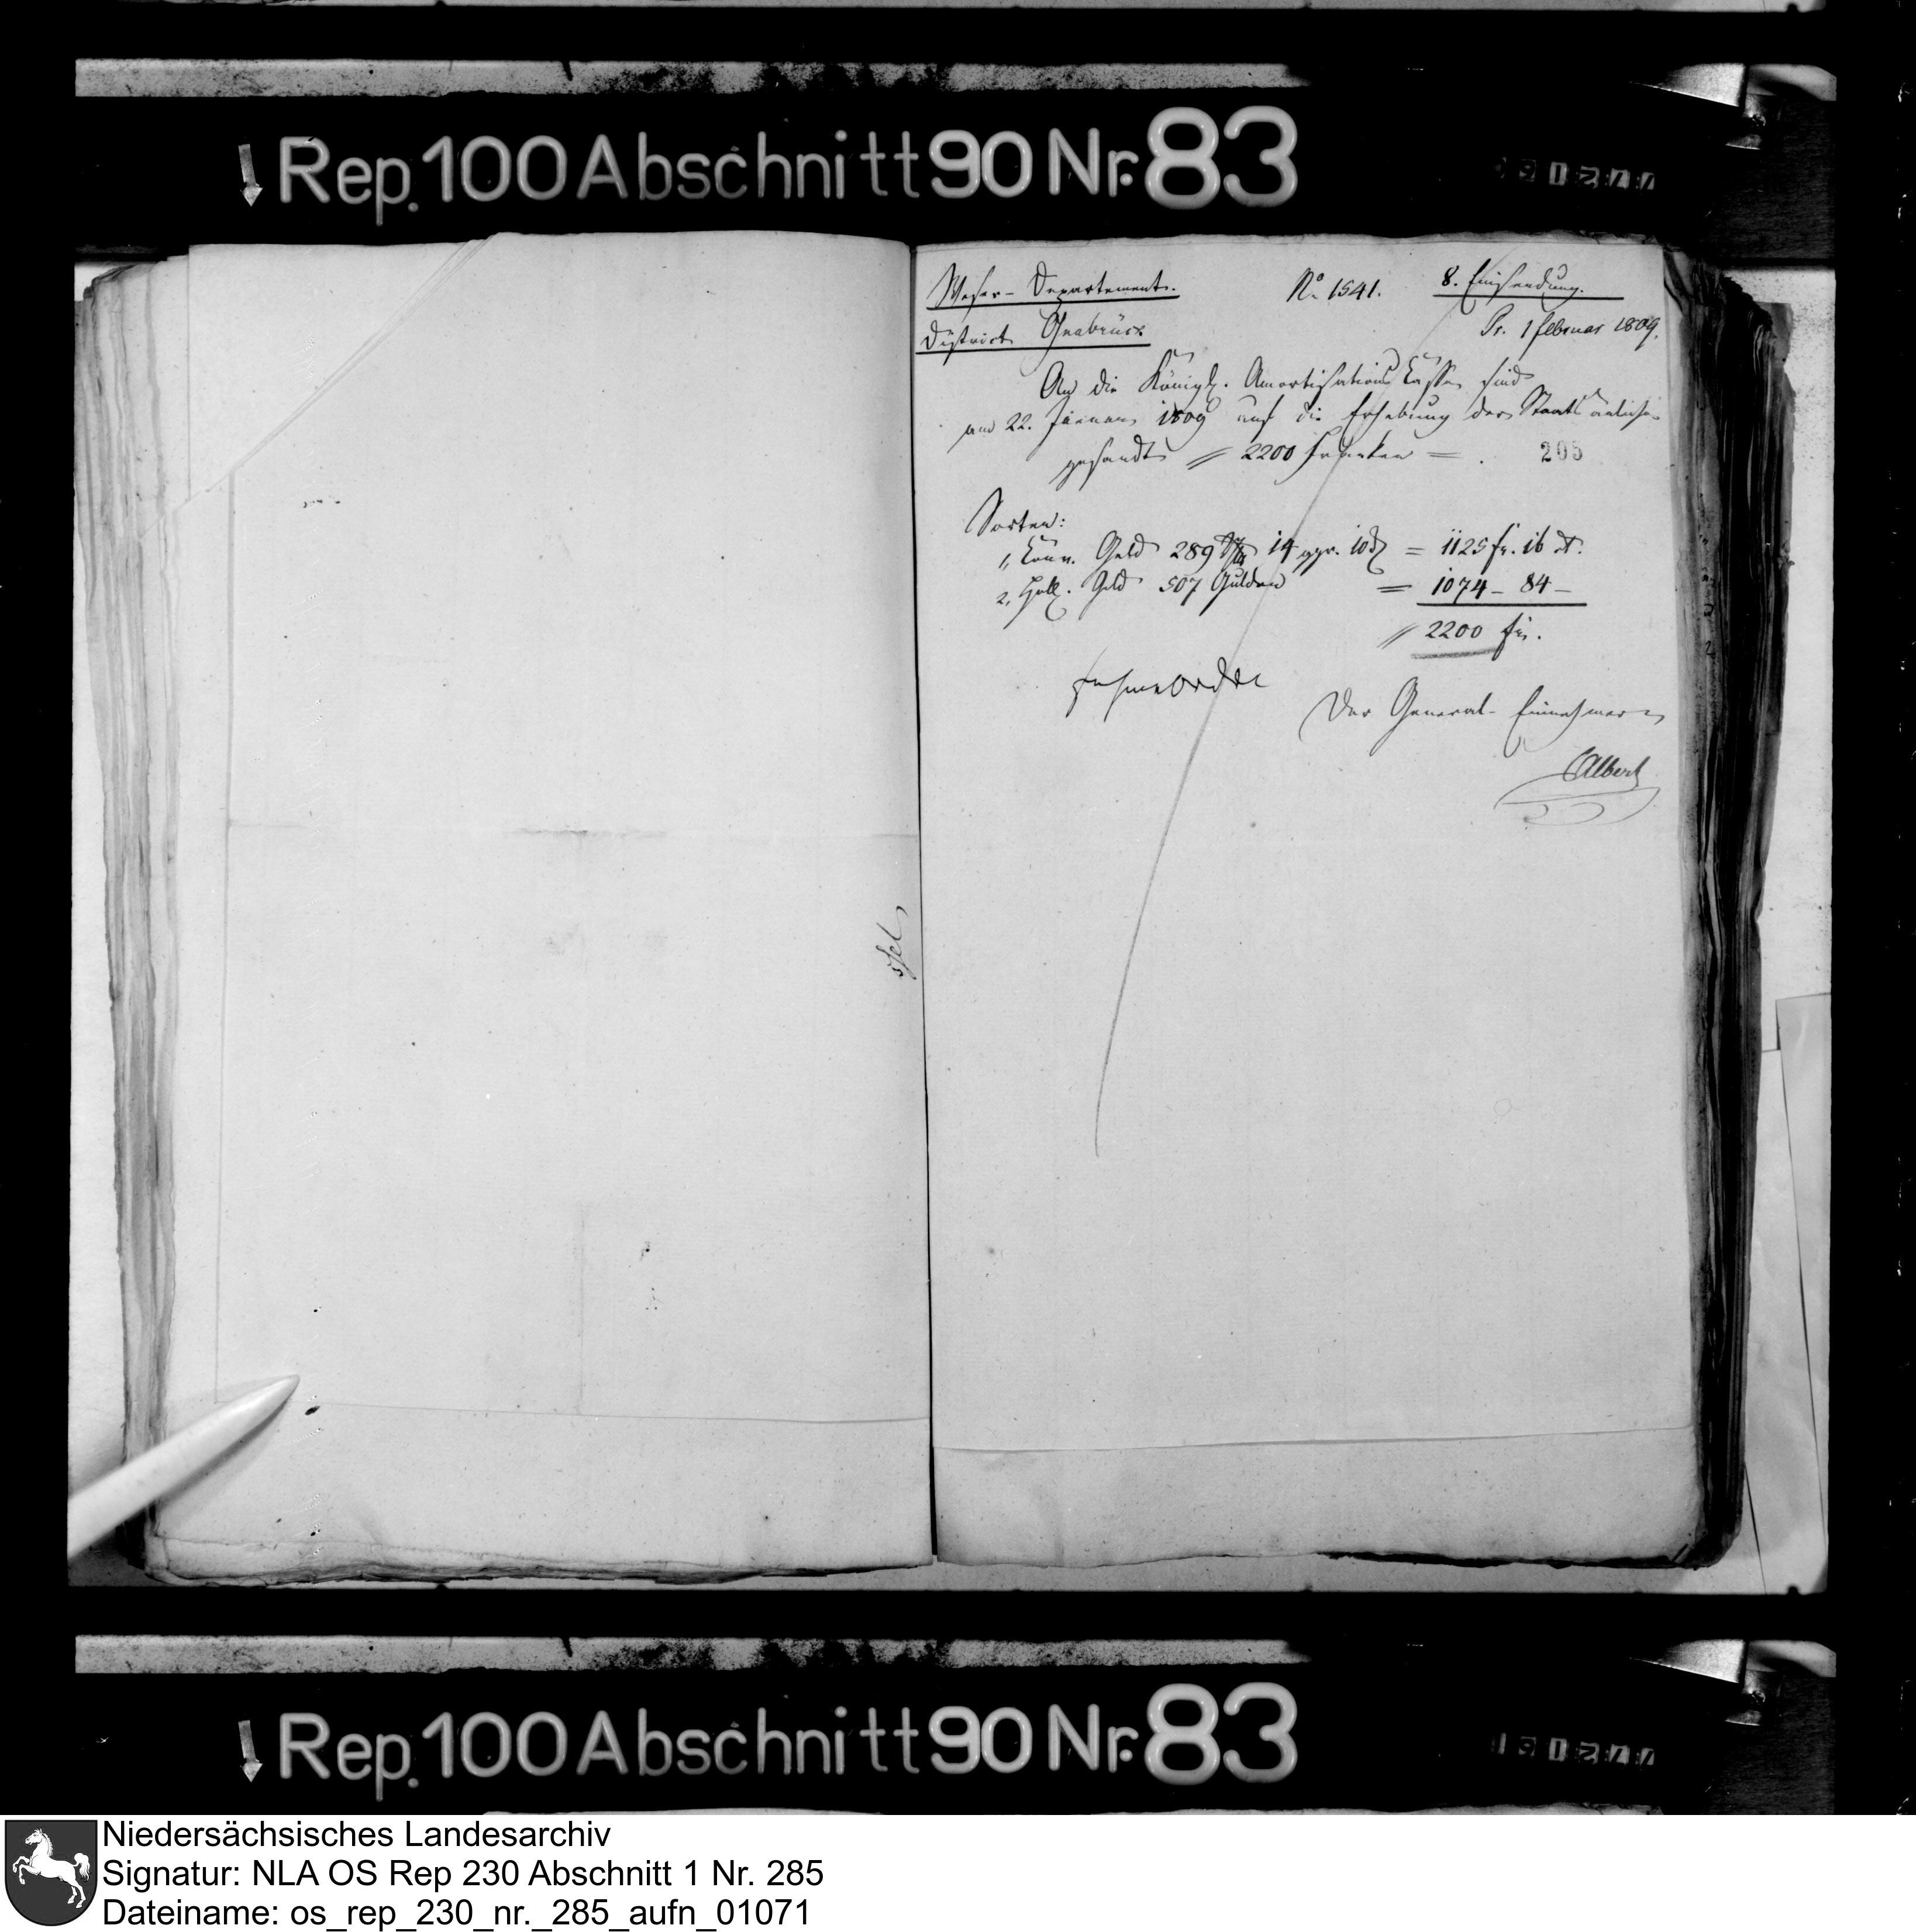 Rep. 100 Abschnitt 90 Nr. 83
Weser-Departement.
N° 1541.
8. Einsendung.
District Osnabrück
Pr. 1 februar 1809.
An die Königl. Amortisations Casse sind
am 22. Januar 1809 auf die Erhebung der Staats anleihe
gesandt // 2200 Franken = .
205
Sorten:
1, Conv. Geld 289 14 ggr. 10 = 1125 fr. 16
2, Holl. Geld 507 Gulden = 1074 – 84 –
// 2200 fr.
Der General-Einnehmer
Albert
Rep. 100 Abschnitt 90 Nr. 83
Niedersächsisches Landesarchiv
Signatur: NLA OS Rep 230 Abschnitt 1 Nr. 285
Dateiname: os_rep_230_nr._285_aufn_01071